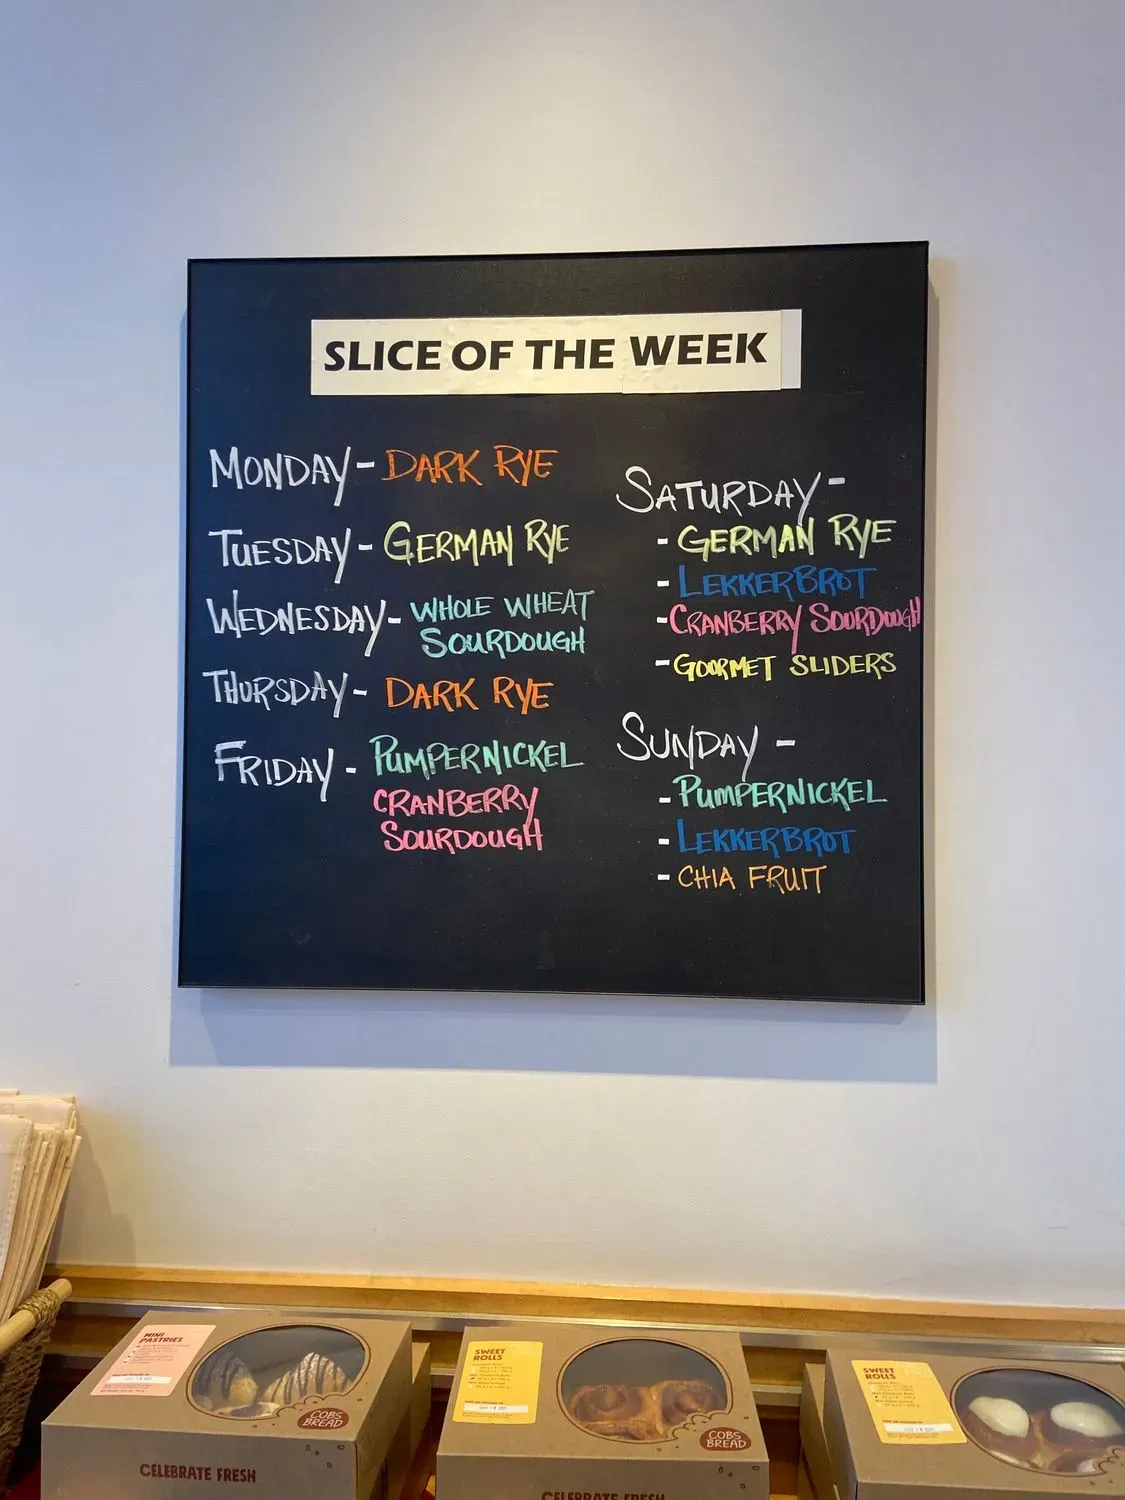 SLICE OF THE WEEK
MONDAY - DARK RYE
TUESDAY - GERMAN RYE
WEDNESDAY - WHOLE WHEAT
SOURDOUGH
THURSDAY - DARK RYE
FRIDAY - PUMPERNICKEL
CRANBERRY
SOURDOUGH
SATURDAY -
- GERMAN RYE
- LEKKERBROT
- CRANBERRY SOURDOUGH
- GOURMET SLIDERS
SUNDAY -
- PUMPERNICKEL
- LEKKERBROT
- CHIA FRUIT
MINI
PASTRIES
COBS
BREAD
CELEBRATE FRESH
SWEET
ROLLS
COBS
BREAD
CELEBRATE FRESH
SWEET
ROLLS